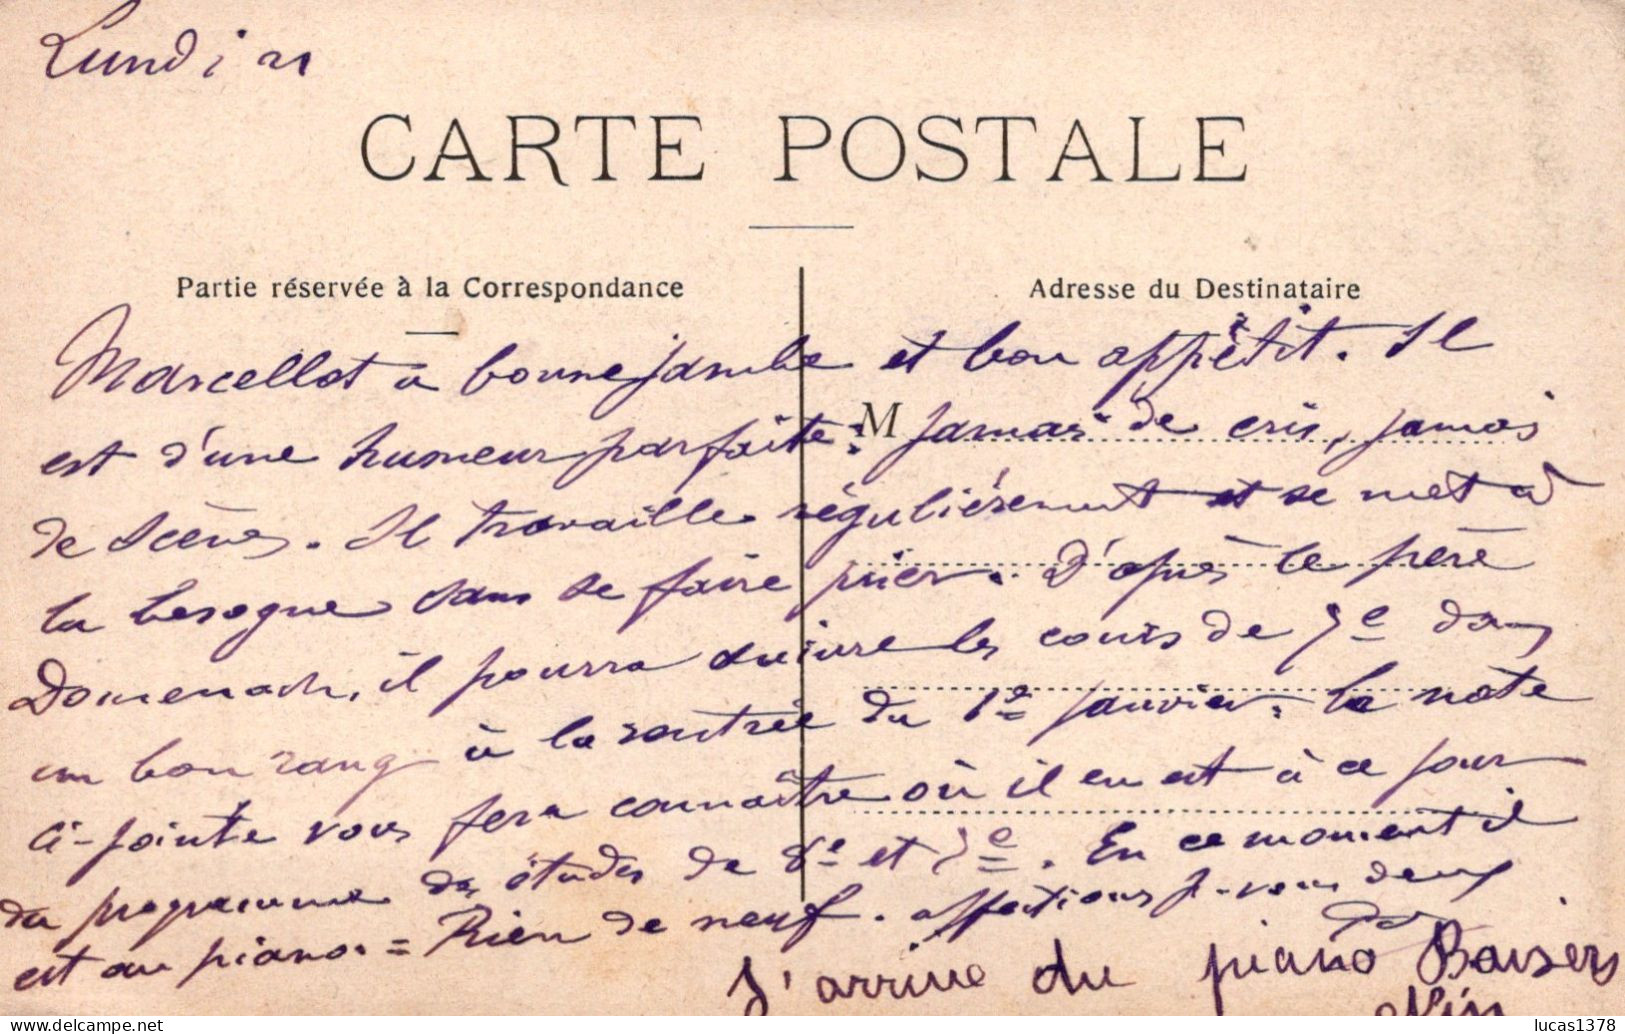 Lundi 21
CARTE POSTALE
Partie réservée à la Correspondance
Adresse du Destinataire
M
Marcellot a bonne jambe et bon appétit. Il
est d'une humeur parfaite: Jamais de cris, jamais
de scènes. Il travaille régulièrement et se met à
la besogne sans se faire prier. D'après le père
Domenach, il pourra suivre les cours de 7e dans
un bon rang à la rentrée du 1e janvier. la note
ci-jointe vous fera connaître où il en est à ce jour
du programme des études de 8e et 7e. En ce moment il
est au piano. = Rien de neuf. affections p. vous deux
J'arrive du piano Baisers
www.delcampe.net
lucas1378